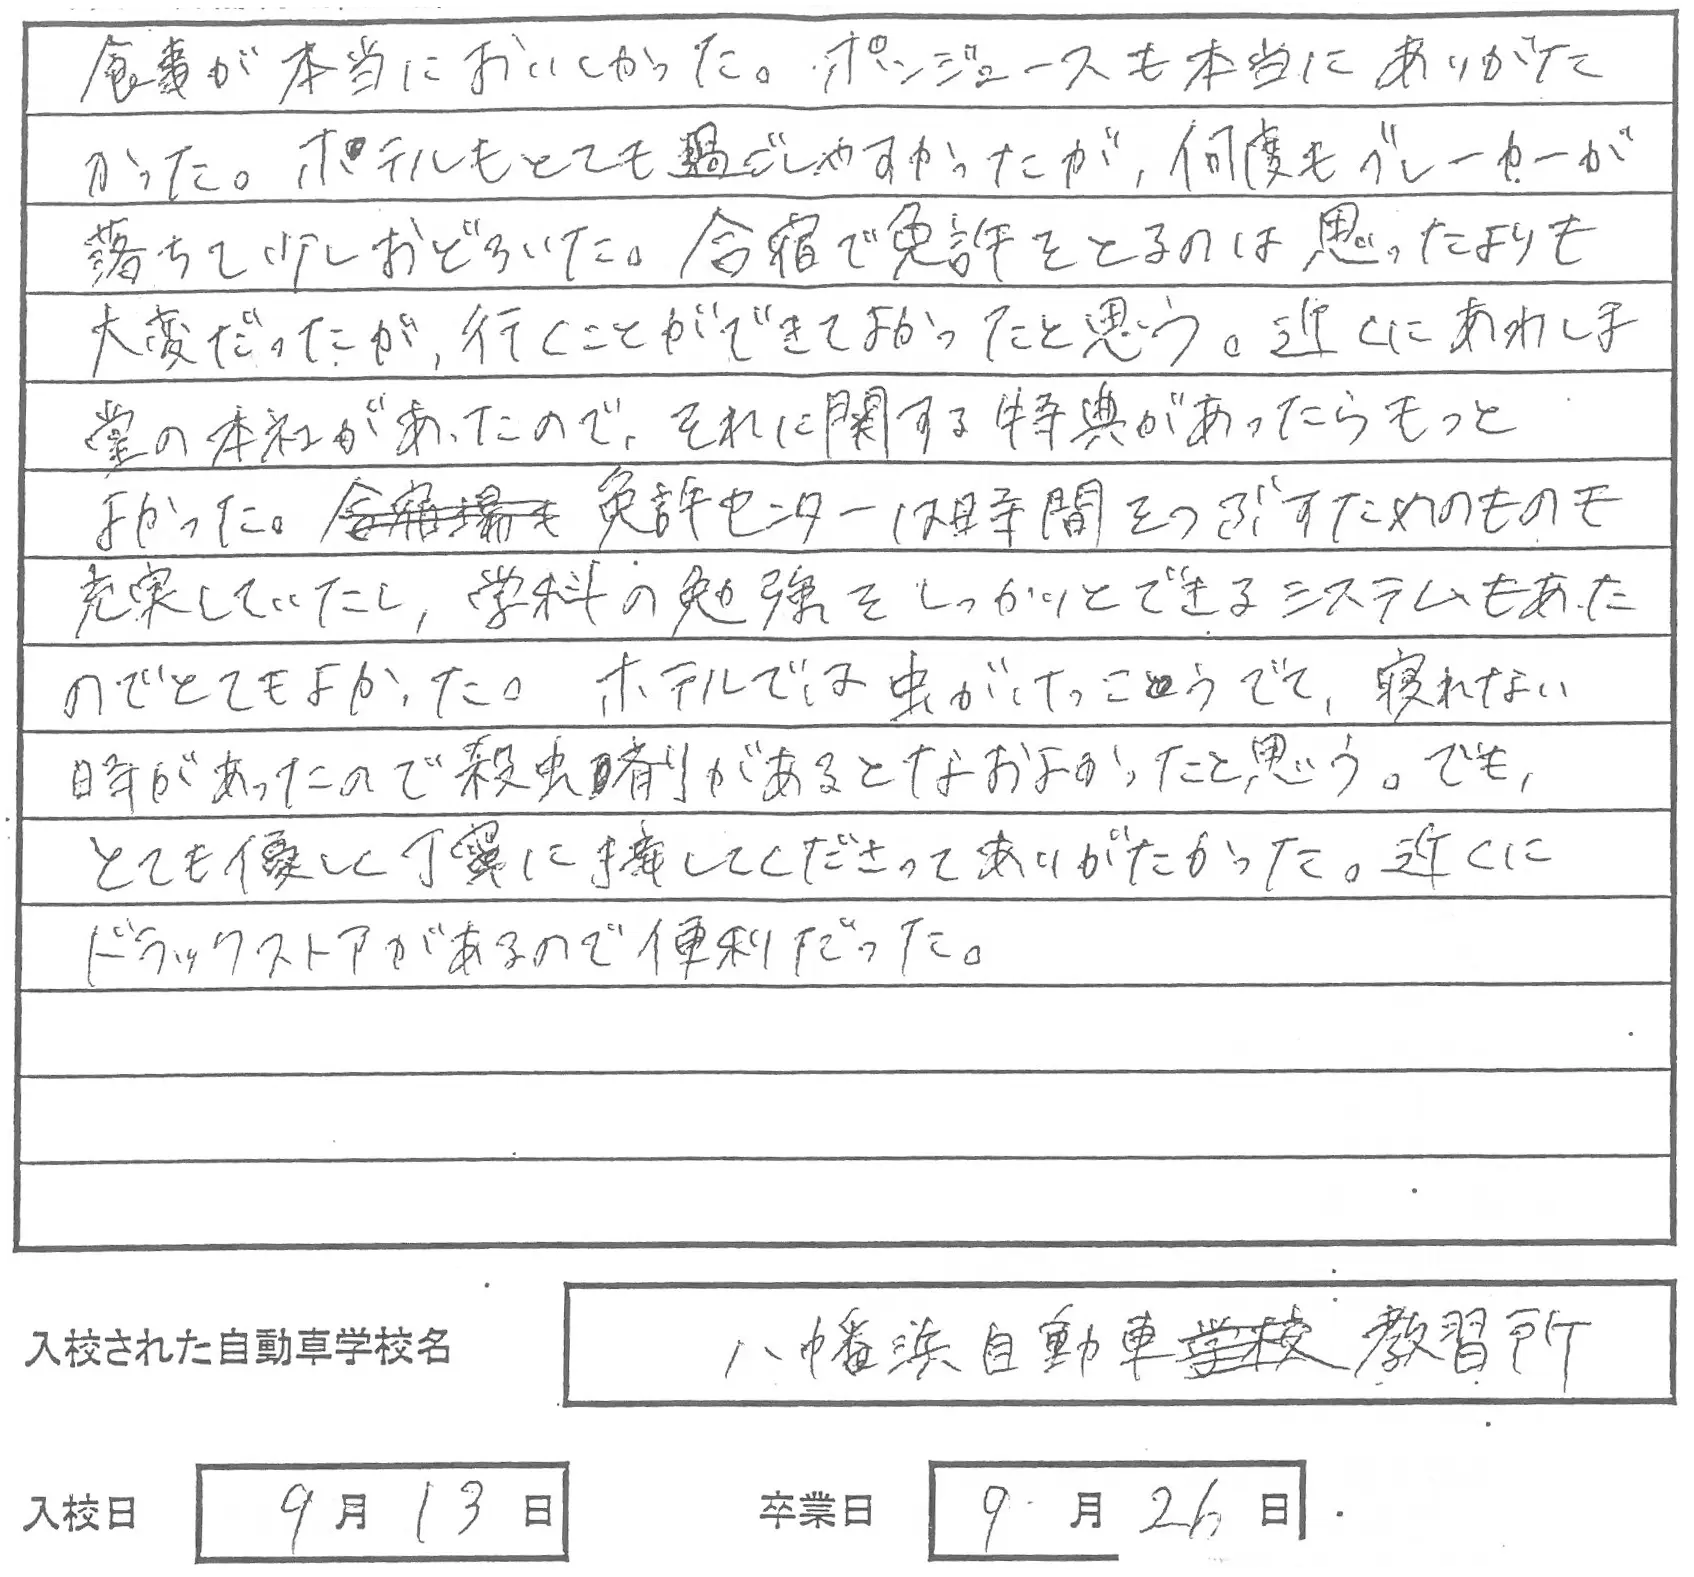 食事が本当においしかった。ポンジュースも本当にありがた
かった。ホテルもとても過ごしやすかったが、何度もブレーカーが
落ちて少しおどろいた。合宿で免許をとるのは思ったよりも
大変だったが、行くことができてよかったと思う。近くにあわしま
堂の本社があったので、それに関する特典があったらもっと
よかった。合宿場も 免許センターは時間をつぶすためのものも
充実していたし、学科の勉強をしっかりとできるシステムもあった
のでとてもよかった。ホテルでは虫がけっこうでて、寝れない
時があったので殺虫剤があるとなおよかったと思う。でも、
とても優しく丁寧に接してくださってありがたかった。近くに
ドラックストアがあるので便利だった。
入校された自動車学校名 八幡浜自動車学校教習所
入校日 9月13日 卒業日 9月26日